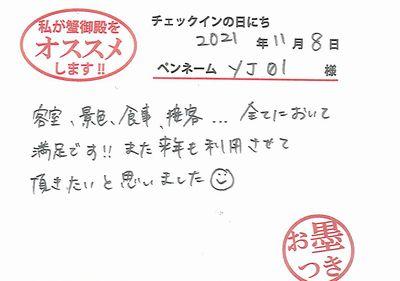 私が蟹御殿を
オススメ
します!!
チェックインの日にち
2021年11月8日
ペンネーム YJ01 様
客室、景色、食事、接客... 全てにおいて
満足です!! また来年も利用させて
頂きたいと思いました☺
お墨
つき